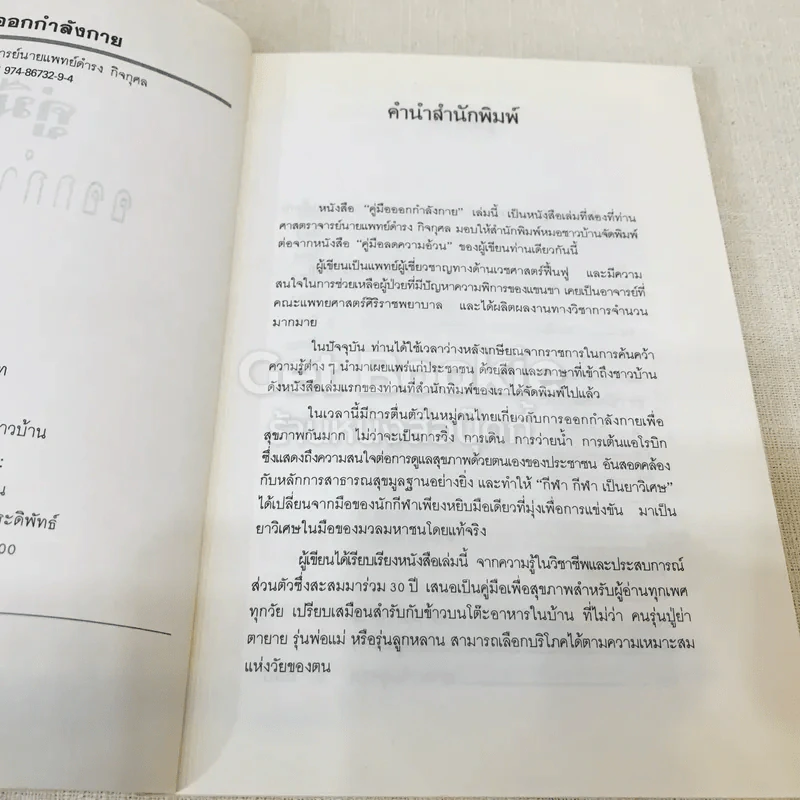 ออกกำลังกาย
ารย์นายแพทย์ดำรง กิจกุศล
974-86732-9-4
าวบ้าน
ระดิพัทธ์
00
คำนำสำนักพิมพ์
หนังสือ “คู่มือออกกำลังกาย” เล่มนี้ เป็นหนังสือเล่มที่สองที่ท่าน
ศาสตราจารย์นายแพทย์ดำรง กิจกุศล มอบให้สำนักพิมพ์หมอชาวบ้านจัดพิมพ์
ต่อจากหนังสือ “คู่มือลดความอ้วน” ของผู้เขียนท่านเดียวกันนี้
ผู้เขียนเป็นแพทย์ผู้เชี่ยวชาญทางด้านเวชศาสตร์ฟื้นฟู และมีความ
สนใจในการช่วยเหลือผู้ป่วยที่มีปัญหาความพิการของแขนขา เคยเป็นอาจารย์ที่
คณะแพทยศาสตร์ศิริราชพยาบาล และได้ผลิตผลงานทางวิชาการจำนวน
มากมาย
ในปัจจุบัน ท่านได้ใช้เวลาว่างหลังเกษียณจากราชการในการค้นคว้า
ความรู้ต่าง ๆ นำมาเผยแพร่แก่ประชาชน ด้วยลีลาและภาษาที่เข้าถึงชาวบ้าน
ดังหนังสือเล่มแรกของท่านที่สำนักพิมพ์ของเราได้จัดพิมพ์ไปแล้ว
ในเวลานี้มีการตื่นตัวในหมู่คนไทยเกี่ยวกับการออกกำลังกายเพื่อ
สุขภาพกันมาก ไม่ว่าจะเป็นการวิ่ง การเดิน การว่ายน้ำ การเต้นแอโรบิก
ซึ่งแสดงถึงความสนใจต่อการดูแลสุขภาพด้วยตนเองของประชาชน อันสอดคล้อง
กับหลักการสาธารณสุขมูลฐานอย่างยิ่ง และทำให้ “กีฬา กีฬา เป็นยาวิเศษ”
ได้เปลี่ยนจากมือของนักกีฬาเพียงหยิบมือเดียวที่มุ่งเพื่อการแข่งขัน มาเป็น
ยาวิเศษในมือของมวลมหาชนโดยแท้จริง
ผู้เขียนได้เรียบเรียงหนังสือเล่มนี้ จากความรู้ในวิชาชีพและประสบการณ์
ส่วนตัวซึ่งสะสมมาร่วม 30 ปี เสนอเป็นคู่มือเพื่อสุขภาพสำหรับผู้อ่านทุกเพศ
ทุกวัย เปรียบเสมือนสำรับกับข้าวบนโต๊ะอาหารในบ้าน ที่ไม่ว่า คนรุ่นปู่ย่า
ตายาย รุ่นพ่อแม่ หรือรุ่นลูกหลาน สามารถเลือกบริโภคได้ตามความเหมาะสม
แห่งวัยของตน